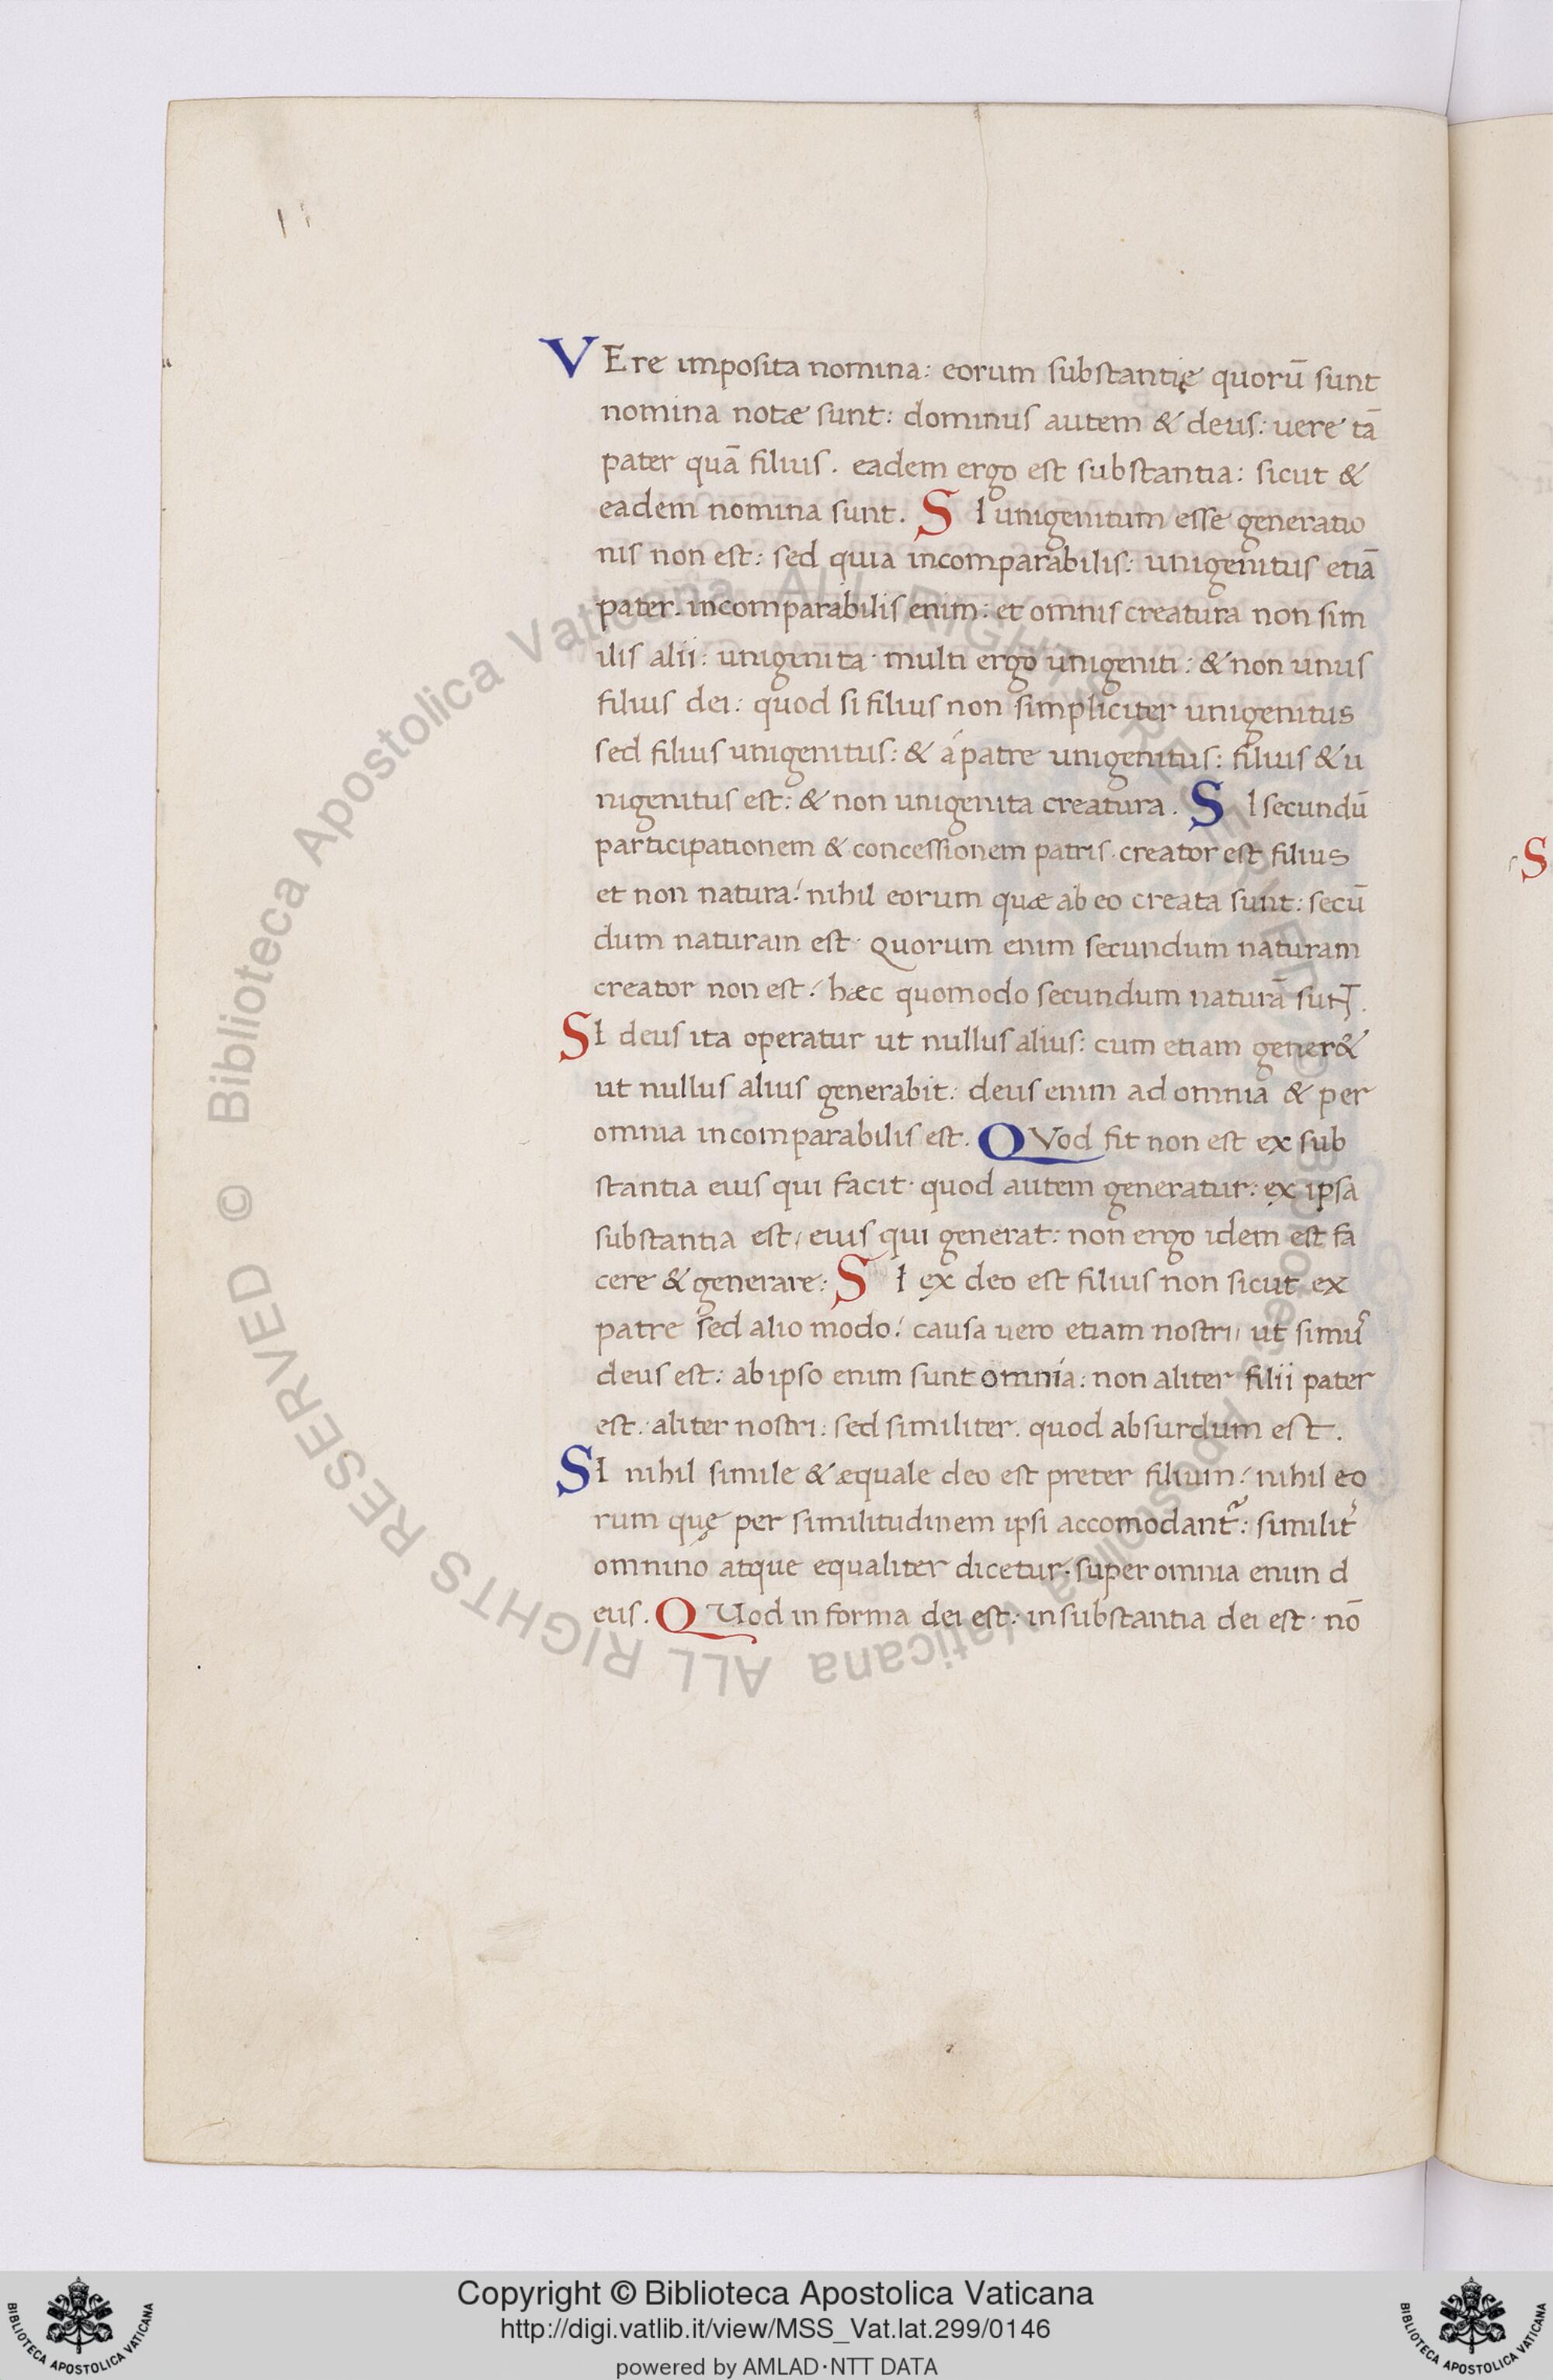 VEre imposita nomina: eorum substantię quorū sunt
nomina notæ sunt: dominus autem & deus: uere tā
pater quā filius. eadem ergo est substantia: sicut &
eadem nomina sunt. SI unigenitum esse generatio
nis non est: sed quia incomparabilis: unigenitus etiā
pater. incomparabilis enim: et omnis creatura non sim
ilis alii: unigenita· multi ergo unigeniti: & non unus
filius dei: quod si filius non simpliciter unigenitus
sed filius unigenitus: & á patre unigenitus: filius & u
nigenitus est: & non unigenita creatura. SI secundū
participationem & concessionem patris· creator est filius
et non natura: nihil eorum quæ ab eo creata sunt: secū
dum naturam est· Quorum enim secundum naturam
creator non est: hæc quomodo secundum naturā sunt.
SI deus ita operatur ut nullus alius: cum etiam gener&
ut nullus alius generabit: deus enim ad omnia & per
omnia incomparabilis est. QVod fit non est ex sub
stantia eius qui facit· quod autem generatur: ex ipsa
substantia est, eius qui generat: non ergo idem est fa
cere & generare: SI ex deo est filius non sicut ex
patre sed alio modo: causa uero etiam nostri, ut simus
deus est: ab ipso enim sunt omnia: non aliter filii pater
est: aliter nostri: sed similiter. quod absurdum est.
SI nihil simile & æquale deo est preter filium: nihil eo
rum quę per similitudinem ipsi accomodant᷑: similit᷑
omnino atque equaliter dicetur· super omnia enim d
eus. QUod in forma dei est: in substantia dei est· nō
© Biblioteca Apostolica Vaticana ALL RIGHTS RESERVED © Biblioteca Apostolica Vaticana ALL RIGHTS RESERVED
S
Copyright © Biblioteca Apostolica Vaticana
http://digi.vatlib.it/view/MSS_Vat.lat.299/0146
powered by AMLAD·NTT DATA
BIBLIOTECA APOSTOLICA VATICANA
BIBLIOTECA APOSTOLICA VATICANA